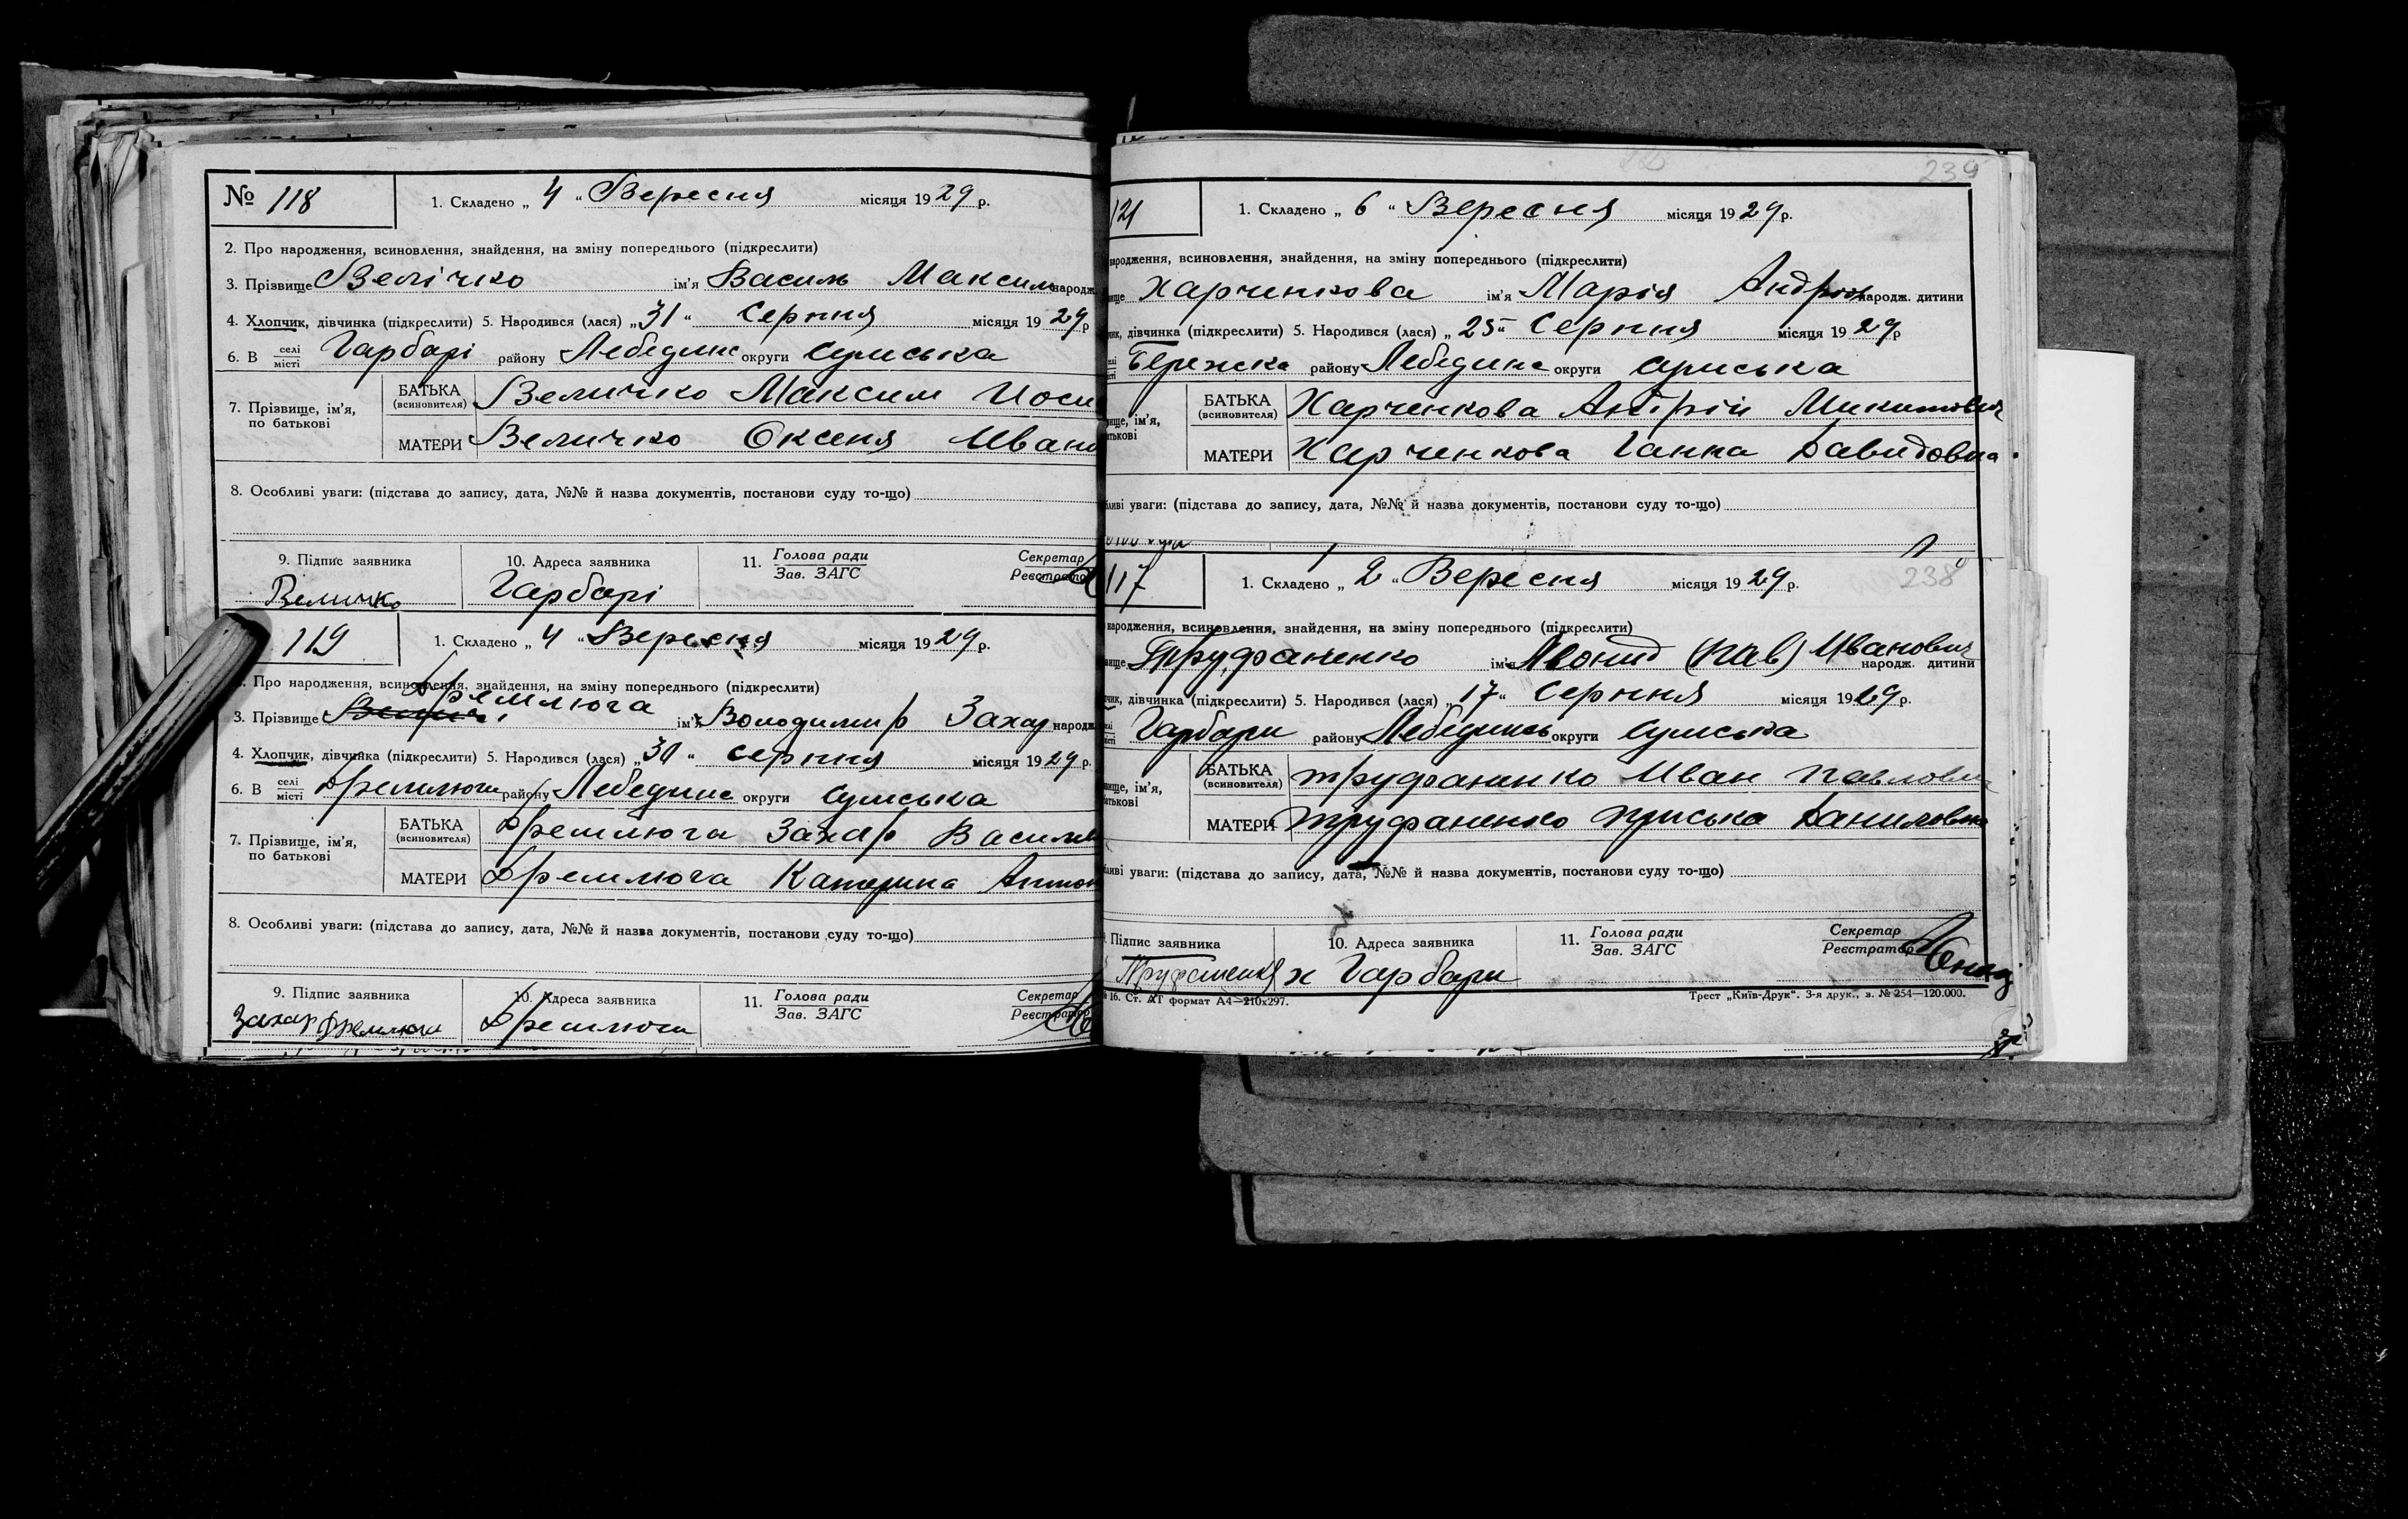 № 118
1. Складено „ 4 “ Вересня місяця 1929 р.
2. Про народження, всиновлення, знайдення, на зміну попереднього (підкреслити)
3. Прізвище Велічко ім'я Василь Максим народж.
4. Хлопчик, дівчинка (підкреслити) 5. Народився (лася) „ 31 “ Серпня місяця 1929 р
6. В селі місті Гарбарі району Лебединс округи Сумська
7. Прізвище, ім'я, по батькові
БАТЬКА (всиновителя) Величко Максим Йоси
МАТЕРИ Величко Оксеня Ивано
8. Особливі уваги: (підстава до запису, дата, №№ й назва документів, постанови суду то-що)
9. Підпис заявника 10. Адреса заявника 11. Голова ради Зав. ЗАГС Секретар Реєстратор
Величко Гарбарі
119
1. Складено „ 4 “ Вересня місяця 1929 р.
Про народження, всиновлення, знайдення, на зміну попереднього (підкреслити)
Дремлюга
3. Прізвище ім'я Володимир Захар народж.
4. Хлопчик, дівчинка (підкреслити) 5. Народився (лася) „ 30 “ серпня місяця 1929 р.
6. В селі місті Дремлюги району Лебединс округи Сумська
7. Прізвище, ім'я, по батькові
БАТЬКА (всиновителя) Дремлюга Захар Василь
МАТЕРИ Дремлюга Катерина Антон
8. Особливі уваги: (підстава до запису, дата, №№ й назва документів, постанови суду то-що)
9. Підпис заявника 10. Адреса заявника 11. Голова ради Зав. ЗАГС Секретар Реєстратор
Захар Дремлюга Дремлюги
239
121
1. Складено „ 6 “ Вересня місяця 1929 р.
народження, всиновлення, знайдення, на зміну попереднього (підкреслити)
Харченкова ім'я Марія Андріев народж. дитини
дівчинка (підкреслити) 5. Народився (лася) „ 25 “ Серпня місяця 1929 р
Бережка району Лебединс округи Сумська
БАТЬКА (всиновителя) Харченкова Андрій Микитович
МАТЕРИ Харченкова Ганна Давидовна
уваги: (підстава до запису, дата, №№ й назва документів, постанови суду то-що)
117
1. Складено „ 2 “ Вересня місяця 1929 р.
238
народження, всиновлення, знайдення, на зміну попереднього (підкреслити)
Труфаненко ім'я Леонид (Пав) Иванович народж. дитини
дівчинка (підкреслити) 5. Народився (лася) „ 17 “ Серпня місяця 1929 р.
Гарбари району Лебединсь округи Сумська
БАТЬКА (всиновителя) Труфаненко Иван Павлович
МАТЕРИ Труфаненко Приська Даниловна
уваги: (підстава до запису, дата, №№ й назва документів, постанови суду то-що)
Підпис заявника 10. Адреса заявника 11. Голова ради Зав. ЗАГС Секретар Реєстратор
Труфаненко х Гарбари
16. Ст. АТ формат А4—210х297. Трест „Київ-Друк“. 3-я друк., з. № 254—120.000.